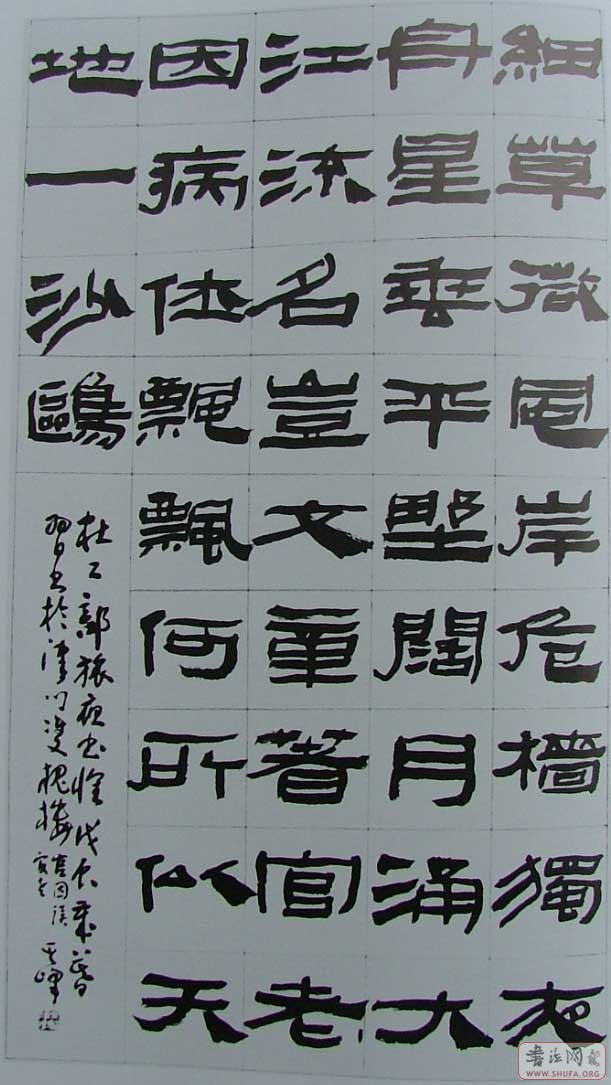 細草微風岸危檣獨夜
舟星垂平野闊月涌大
江流名豈文章著官老
因病休飄飄何所似天
地一沙鷗
杜工部旅夜書懷戊
習書於津門雙槐樓
WWW.SHUFA.ORG